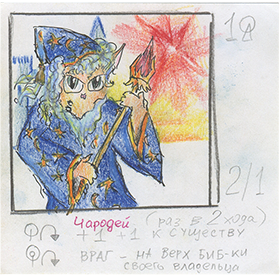 1
2/1
Чародей (раз в 2 хода)
+1 +1 к существу
ВРАГ - НА ВЕРХ БИБ-КИ
своего владельца